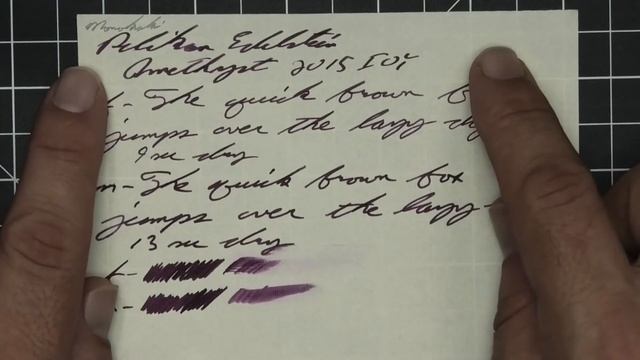 Pelikan Edelstein
Amethyst 2015 IOY
f- The quick brown
jumps over the lazy
9 sec dry
m- The quick brown fox
jumps over the lazy
13 sec dry
f-